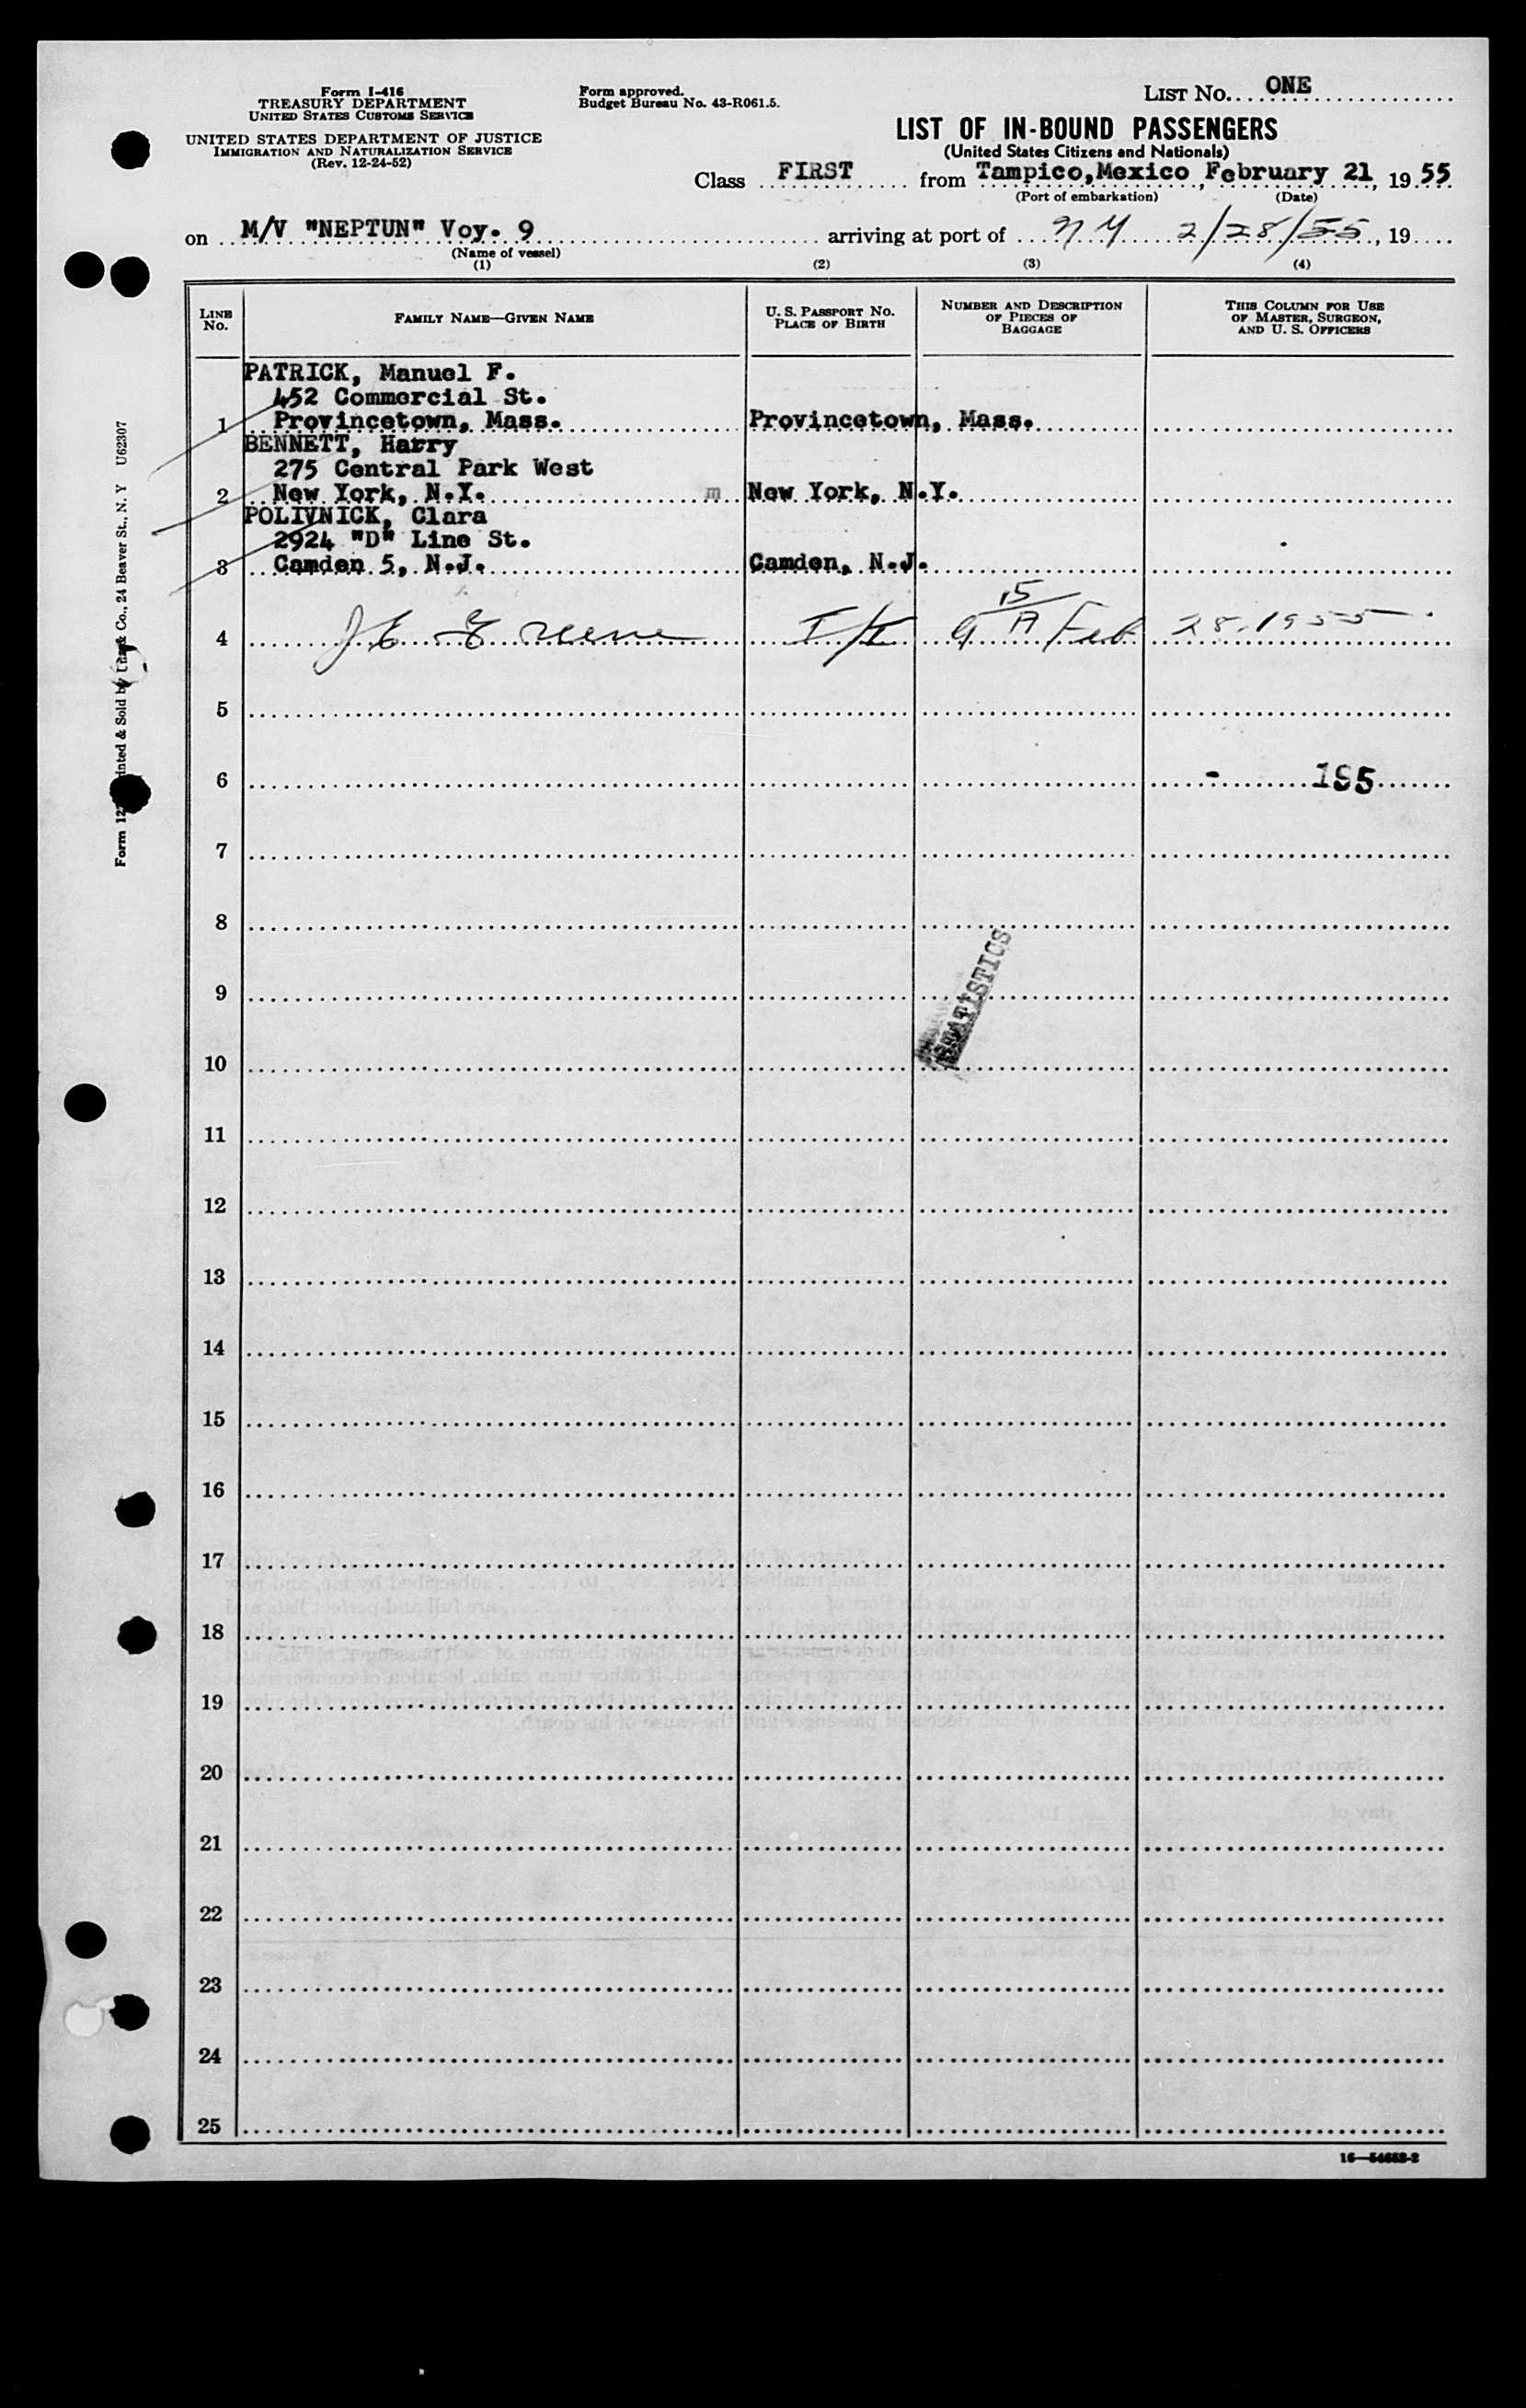 Form I-416
TREASURY DEPARTMENT
UNITED STATES CUSTOMS SERVICE
UNITED STATES DEPARTMENT OF JUSTICE
IMMIGRATION AND NATURALIZATION SERVICE
(Rev. 12-24-52)
Form approved.
Budget Bureau No. 43-R061.5.
LIST No. ONE
LIST OF IN-BOUND PASSENGERS
(United States Citizens and Nationals)
Class FIRST from Tampico, Mexico, February 21, 1955
(Port of embarkation) (Date)
on M/V "NEPTUN" Voy. 9 arriving at port of NY 2/28/55, 19
(Name of vessel)
(1) (2) (3) (4)
LINE No.
FAMILY NAME—GIVEN NAME
U. S. PASSPORT No.
PLACE OF BIRTH
NUMBER AND DESCRIPTION
OF PIECES OF
BAGGAGE
THIS COLUMN FOR USE
OF MASTER, SURGEON,
AND U. S. OFFICERS
PATRICK, Manuel F.
452 Commercial St.
1 Provincetown, Mass. Provincetown, Mass.
BENNETT, Harry
275 Central Park West
2 New York, N.Y. m New York, N.Y.
POLIVNICK, Clara
2924 "D" Line St.
3 Camden 5, N.J. Camden, N.J.
4 I/I 9 15 A Feb 28, 1955
5
6 - 195
7
8
9
STATISTICS
10
11
12
13
14
15
16
17
18
19
20
21
22
23
24
25
16—54653-2
Co., 24 Beaver St., N. Y U62307